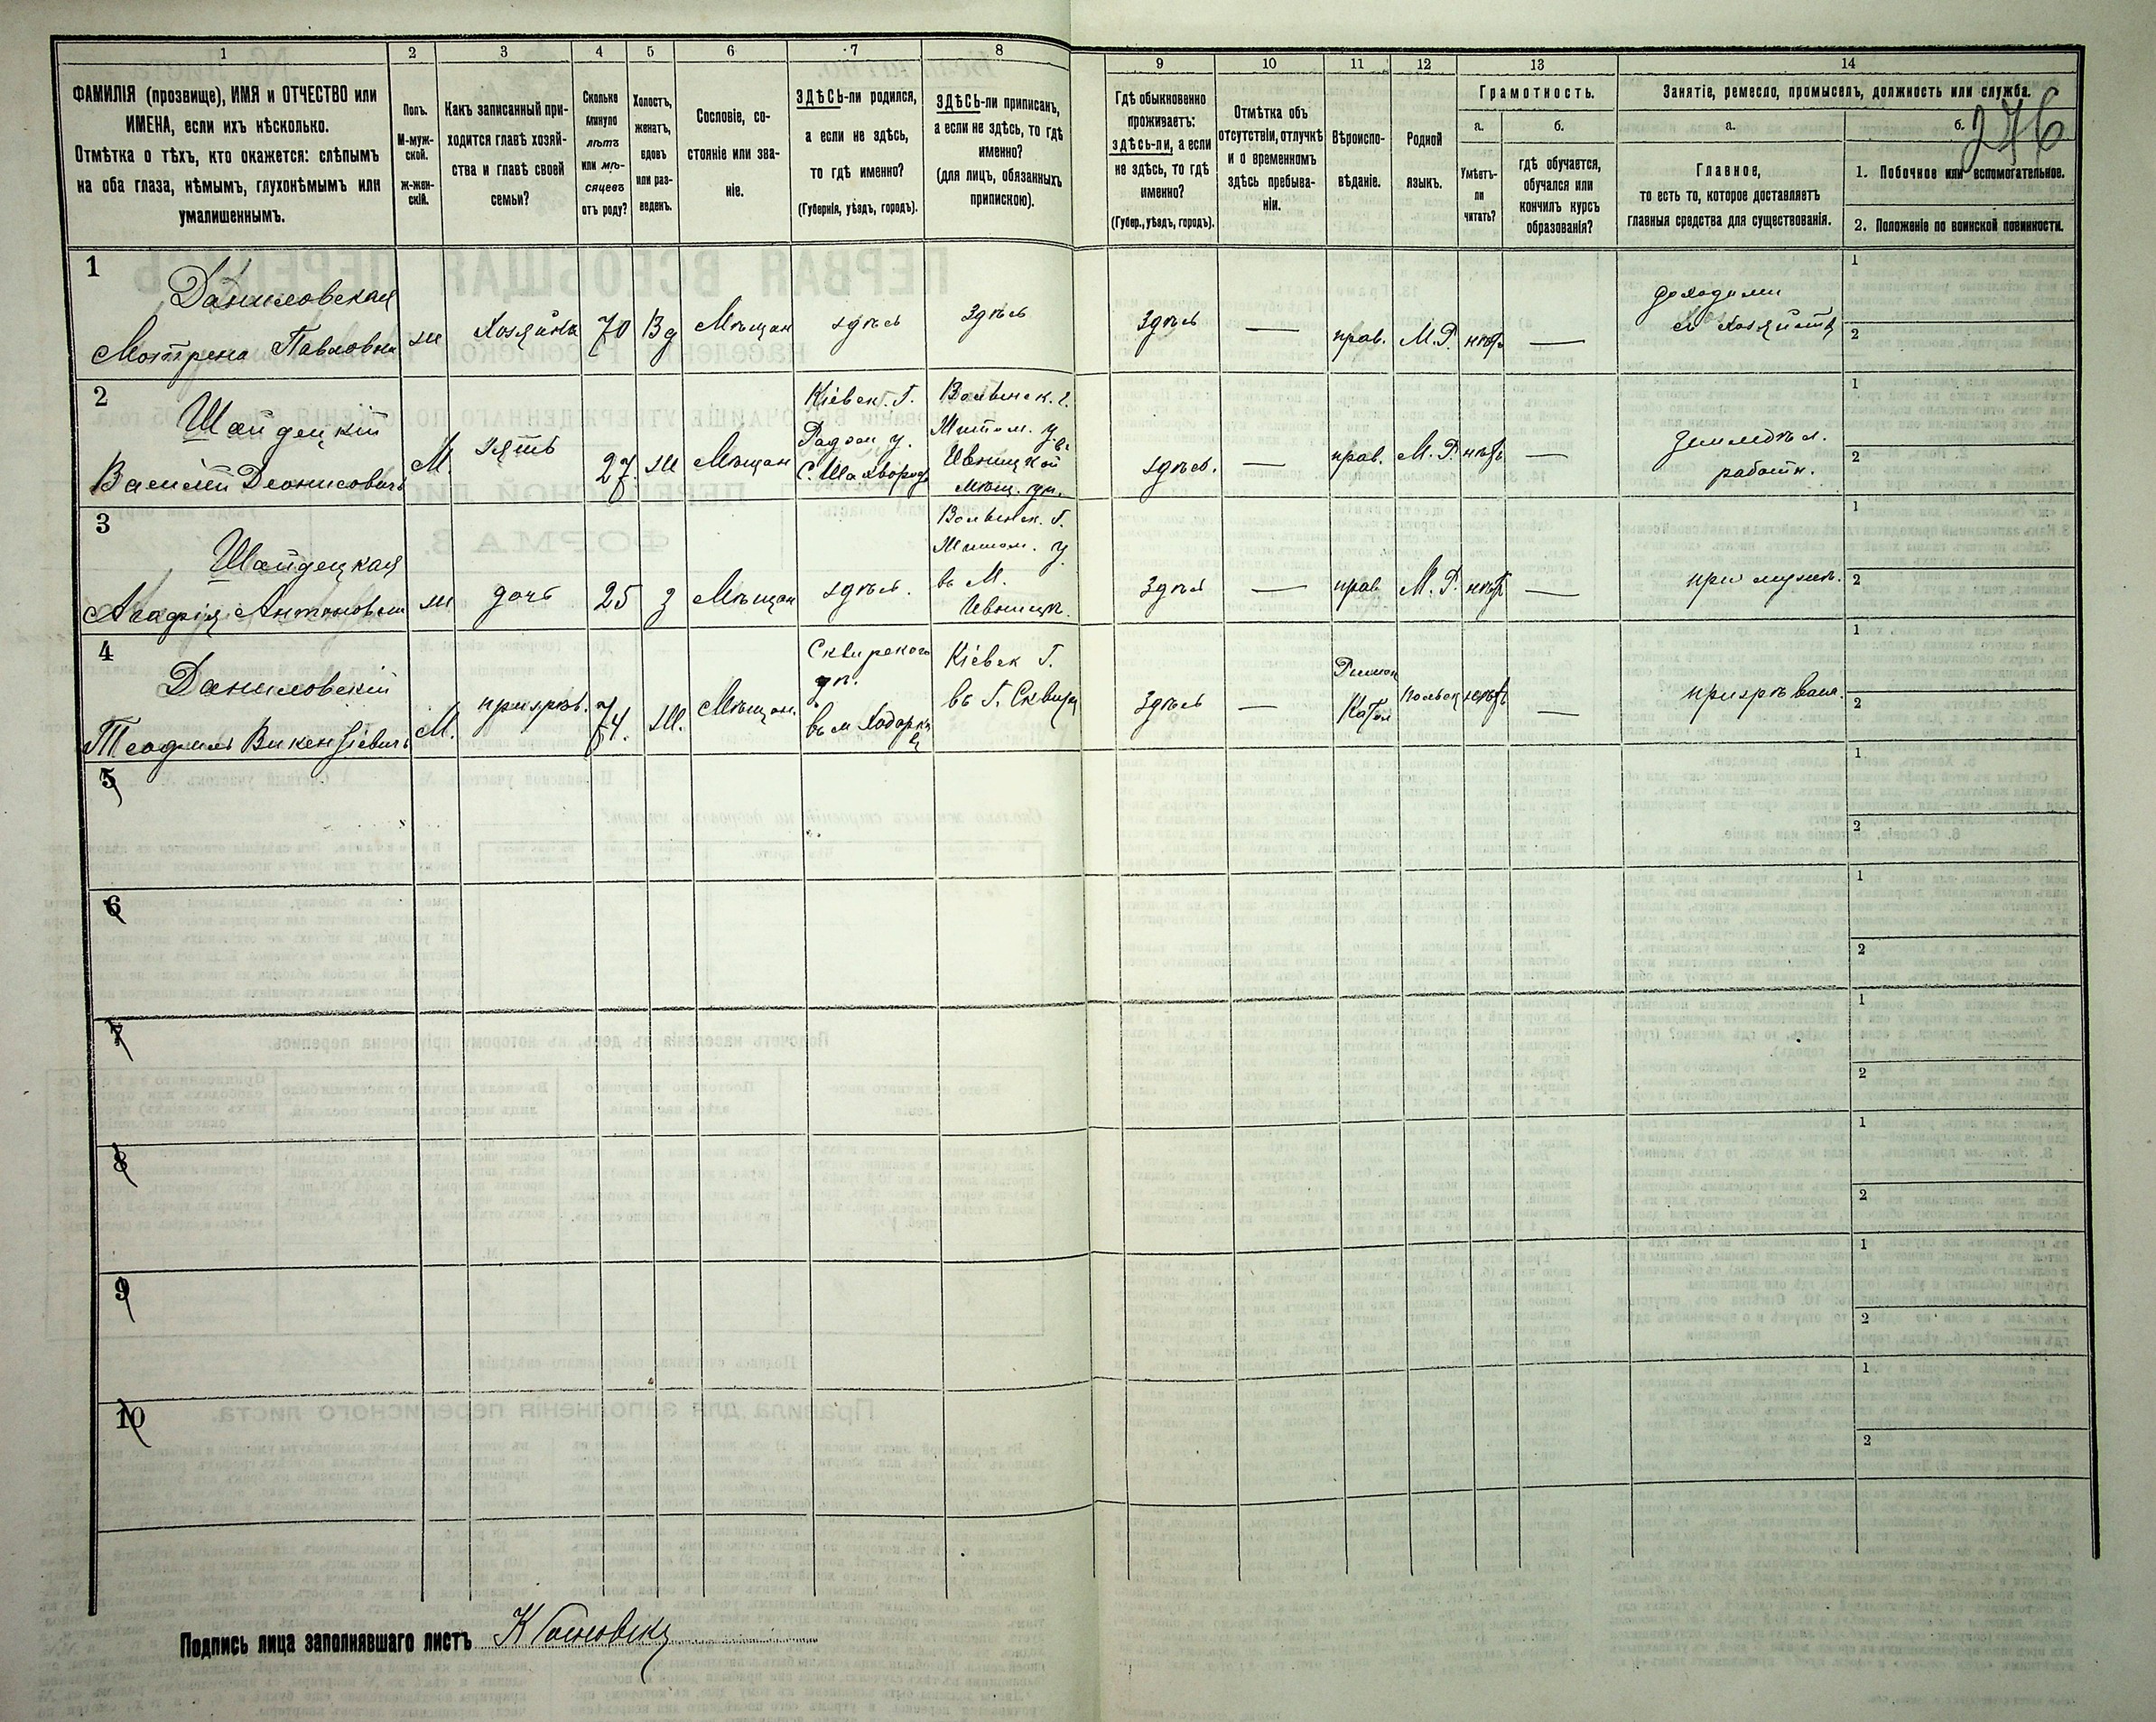 1 2 3 4 5 6 7 8 9 10 11 12 13 14
ФАМИЛІЯ (прозвище), ИМЯ и ОТЧЕСТВО или
ИМЕНА, если ихъ нѣсколько.
Отмѣтка о тѣхъ, кто окажется: слѣпымъ
на оба глаза, нѣмымъ, глухонѣмымъ или
умалишеннымъ.
Полъ.
М-муж-
ской.
ж-жен-
скій.
Какъ записанный при-
ходится главѣ хозяй-
ства и главѣ своей
семьи?
Сколько
минуло
лѣтъ
или мѣ-
сяцевъ
отъ роду?
Холостъ,
женатъ,
вдовъ
или раз-
веденъ.
Сословіе, со-
стояніе или зва-
ніе.
ЗДѢСЬ-ли родился,
а если не здѣсь,
то гдѣ именно?
(Губернія, уѣздъ, городъ).
ЗДѢСЬ-ли приписанъ,
а если не здѣсь, то гдѣ
именно?
(для лицъ, обязанныхъ
припискою).
Гдѣ обыкновенно
проживаетъ:
здѣсь-ли, а если
не здѣсь, то гдѣ
именно?
(Губер., уѣздъ, городъ).
Отмѣтка объ
отсутствіи, отлучкѣ
и о временномъ
здѣсь пребыва-
ніи.
Вѣроиспо-
вѣданіе.
Родной
языкъ.
Грамотность.
а.
Умѣетъ-
ли
читать?
б.
гдѣ обучается,
обучался или
кончилъ курсъ
образованія?
Занятіе, ремесло, промыселъ, должность или служба.
а.
Главное,
то есть то, которое доставляетъ
главныя средства для существованія.
б.
276
1. Побочное или вспомогательное.
2. Положеніе по воинской повинности.
1
Даниловская
Мотрена Павловна
ж
Хозяйка
70
Вд
Мѣщан
здѣсь
здѣсь
здѣсь
—
прав.
М.Р.
нѣтъ
—
1
2
2
Шайдецкій
Василій Деонисовичъ
М.
зять
27.
Ж
Мѣщан
Кіевск. Г.
С. Шахвород
Волынск. г.
Житом. у
Ивницкой
Мѣщ. уп.
здѣсь.
—
прав.
М.Р.
нѣтъ
—
землядѣл.
работн.
1
2
3
Шайдецкая
Агафія Антоновна
ж
дочь
25
З
Мѣщан
здѣсь.
Волынск. Г.
Житом. у
въ М.
Ивницк.
здѣсь
—
прав.
М.Р.
нѣтъ
—
при мужѣ.
1
2
4
Даниловскій
Теофиль Викентіевичъ
М.
призрѣв.
74.
Ж.
Мѣщан.
Сквирского
въ м Ходорк
Кіевск Г.
въ Г. Сквиру
здѣсь
—
Римск
Катол
польск
нѣтъ
—
призрѣваем.
1
2
5
1
2
6
1
2
7
1
2
8
1
2
9
1
2
10
1
2
Подпись лица заполнявшаго листъ